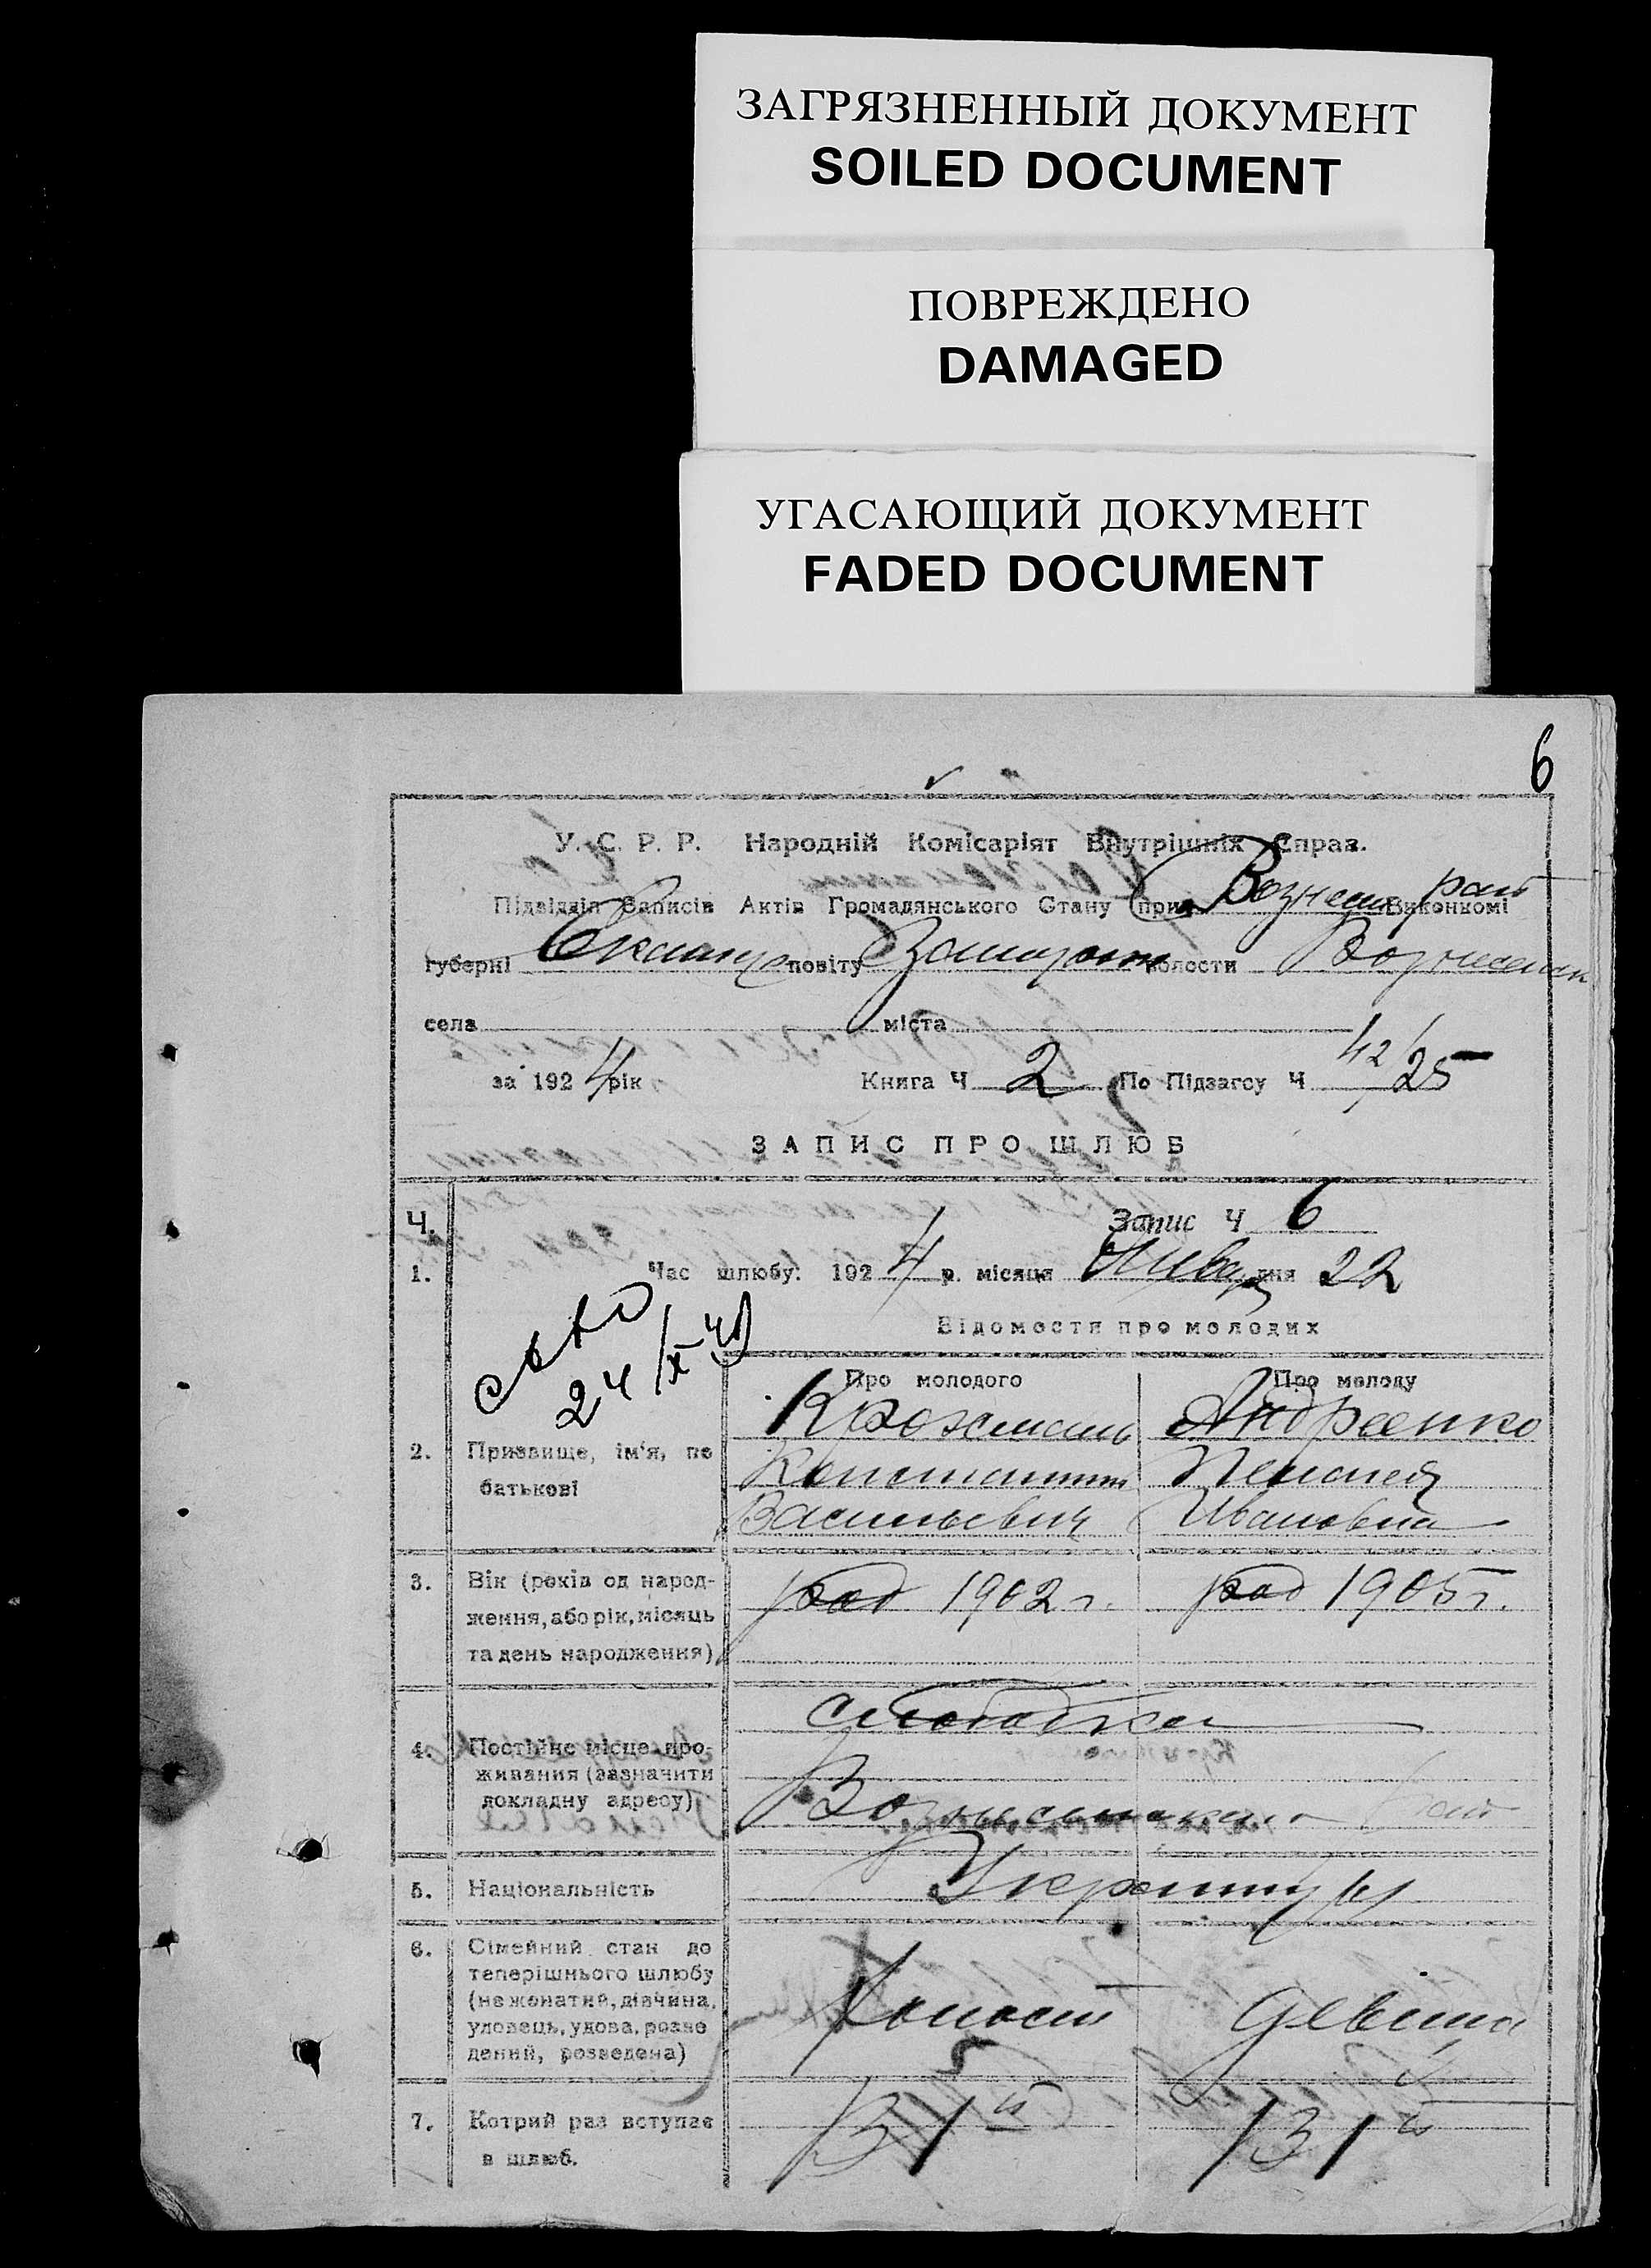 ЗАГРЯЗНЕННЫЙ ДОКУМЕНТ
SOILED DOCUMENT
ПОВРЕЖДЕНО
DAMAGED
УГАСАЮЩИЙ ДОКУМЕНТ
FADED DOCUMENT
6
У. С. Р. Р. Народній Комісаріят Внутрішніх Справ.
Підвідділ Записів Актів Громадянського Стану при Вознесен рай Виконкомі
губерні повіту волости
села міста
за 1924 рік Книга Ч 2 По Підзагсу Ч 42/25
ЗАПИС ПРО ШЛЮБ
Ч. Запис Ч 6
1. Час шлюбу: 1924 р. місяця Январ дня 22
24/X
Відомости про молодих
Про молодого Про молоду
2. Призвище, ім'я, по батькові
Андреенко
Константин Пелагея
Васильевич Ивановна
3. Вік (років од народ-
ження, або рік, місяць
та день народження)
род 1902 г. род 1905 г.
Слободка
4. Постійне місце про-
живання (зазначити
докладну адресу)
5. Національність Украинцы
6. Сімейний стан до
теперішнього шлюбу
(нежонатий, дівчина,
удовець, удова, розве
дений, розведена)
Холост Девица
7. Котрий раз вступає
в шлюб.
В 1й В 1й